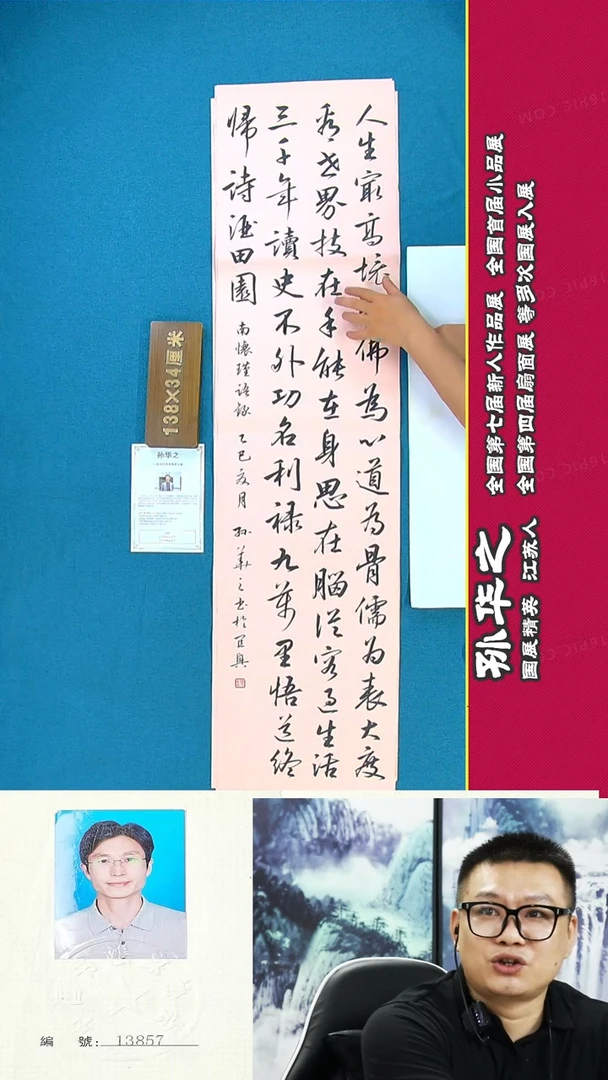 人生最高境佛為心道为骨儒为表大度
看世界技在手能在身思在腦從容過生活
三千年讀史不外功名利禄九萬里悟道終
歸詩酒田園
南懷瑾語錄 乙巳夏月 孫華之書於宜興
138×34厘米
孙华之
孙华之
國展精英 江苏人
全国第七届新人作品展 全国首届小品展
全国第四届扇面展 等多次國展入展
編 號: 13857